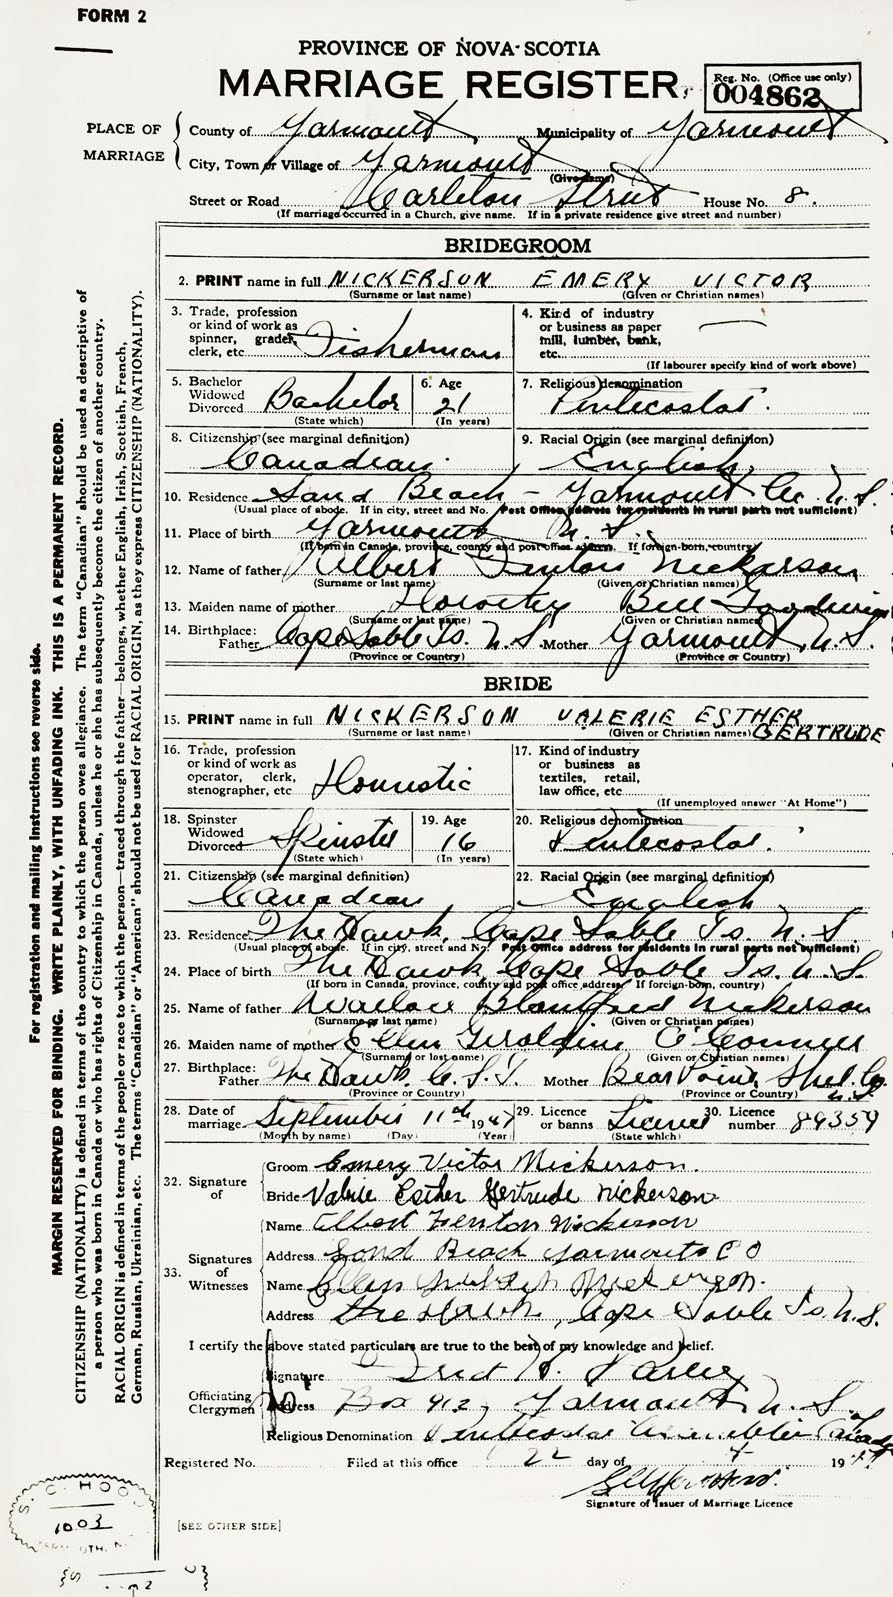 FORM 2
PROVINCE OF NOVA-SCOTIA
MARRIAGE REGISTER
Reg. No. (Office use only)
004862
PLACE OF MARRIAGE
County of Yarmouth Municipality of Yarmouth
City, Town or Village of Yarmouth
(Give name)
Street or Road Carleton Street House No. 8.
(If marriage occurred in a Church, give name. If in a private residence give street and number)
BRIDEGROOM
2. PRINT name in full NICKERSON EMERY VICTOR
(Surname or last name) (Given or Christian names)
3. Trade, profession or kind of work as spinner, grader, clerk, etc. Fisherman
4. Kind of industry or business as paper mill, lumber, bank, etc.
(If labourer specify kind of work above)
5. Bachelor Widowed Divorced Bachelor
(State which)
6. Age 21
(In years)
7. Religious denomination Pentecostal.
8. Citizenship (see marginal definition) Canadian.
9. Racial Origin (see marginal definition) English
10. Residence Sand Beach - Yarmouth Co. N.S.
(Usual place of abode. If in city, street and No. Post Office address for residents in rural parts not sufficient)
11. Place of birth Yarmouth N.S.
(If born in Canada, province, county and post office address. If foreign-born, country)
12. Name of father Albert Fenton Nickerson
(Surname or last name) (Given or Christian names)
13. Maiden name of mother Dorothy Bell
(Surname or last name) (Given or Christian names)
14. Birthplace: Father Cape Sable Is. N.S. Mother Yarmouth, N.S.
(Province or Country) (Province or Country)
BRIDE
15. PRINT name in full NICKERSON VALERIE ESTHER GERTRUDE
(Surname or last name) (Given or Christian names)
16. Trade, profession or kind of work as operator, clerk, stenographer, etc. Domestic
17. Kind of industry or business as textiles, retail, law office, etc.
(If unemployed answer "At Home")
18. Spinster Widowed Divorced Spinster
(State which)
19. Age 16
(In years)
20. Religious denomination Pentecostal.
21. Citizenship (see marginal definition) Canadian
22. Racial Origin (see marginal definition) English
23. Residence The Hawk, Cape Sable Is. N.S.
(Usual place of abode. If in city, street and No. Post Office address for residents in rural parts not sufficient)
24. Place of birth The Hawk, Cape Sable Is. N.S.
(If born in Canada, province, county and post office address. If foreign-born, country)
25. Name of father Wallace Blanford Nickerson
(Surname or last name) (Given or Christian names)
26. Maiden name of mother Ellen Geraldine O'Connor
(Surname or last name) (Given or Christian names)
27. Birthplace: Father The Hawk, C.S.I. Mother Bear Point, Shel. Co. N.S.
(Province or Country) (Province or Country)
28. Date of marriage September 11th 1947
(Month by name) (Day) (Year)
29. Licence or banns Licence
(State which)
30. Licence number 89359
32. Signature of
Groom Emery Victor Nickerson.
Bride Valerie Esther Gertrude Nickerson
33. Signatures of Witnesses
Name Albert Fenton Nickerson
Address Sand Beach Yarmouth CO
Name Ellen Nickerson.
Address The Hawk, Cape Sable Is. N.S.
I certify the above stated particulars are true to the best of my knowledge and belief.
Officiating Clergyman
Signature
Address Box 912, Yarmouth N.S.
Religious Denomination Pentecostal Assemblies of Canada
Registered No. Filed at this office 22 day of 19 47
Signature of Issuer of Marriage Licence
[SEE OTHER SIDE]
S. C. HOOD
1003
For registration and mailing instructions see reverse side.
MARGIN RESERVED FOR BINDING. WRITE PLAINLY, WITH UNFADING INK. THIS IS A PERMANENT RECORD.
CITIZENSHIP (NATIONALITY) is defined in terms of the country to which the person owes allegiance. The term "Canadian" should be used as descriptive of
a person who was born in Canada or who has rights of Citizenship in Canada, unless he or she has subsequently become the citizen of another country.
RACIAL ORIGIN is defined in terms of the people or race to which the person—traced through the father—belongs, whether English, Irish, Scottish, French,
German, Russian, Ukrainian, etc. The terms "Canadian" or "American" should not be used for RACIAL ORIGIN, as they express CITIZENSHIP (NATIONALITY).